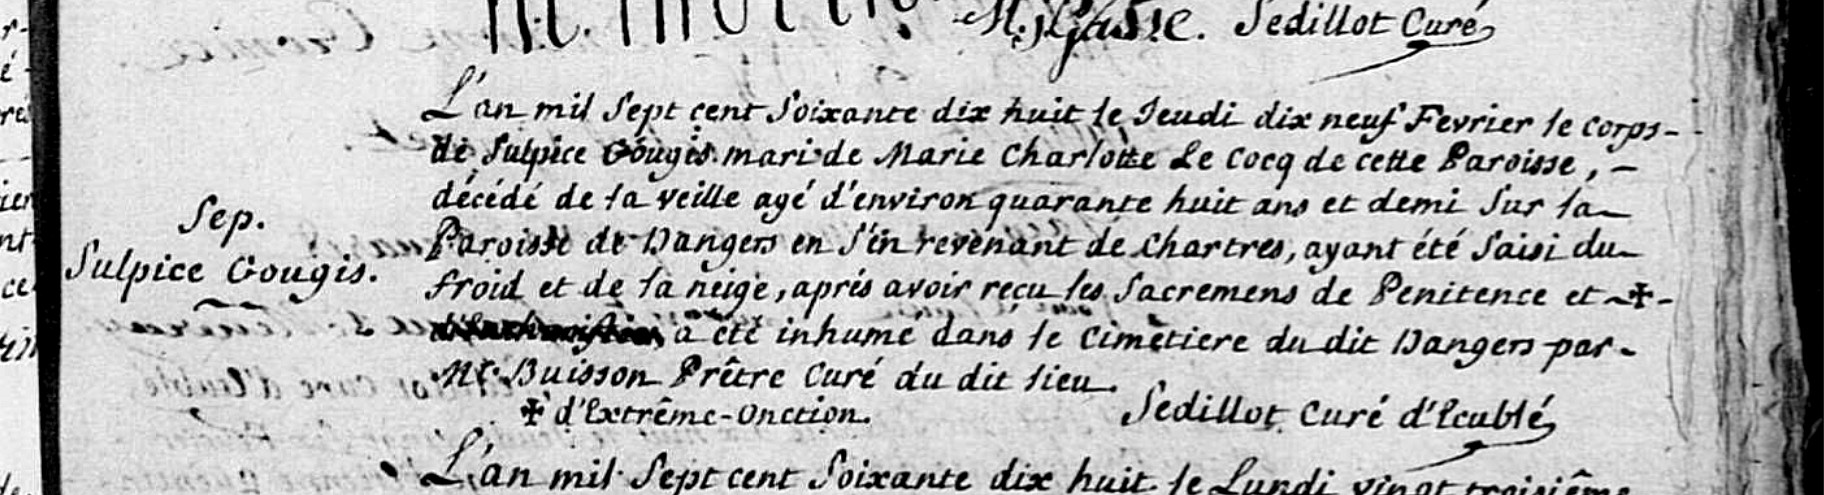 Sedillot Curé
L'an mil Sept cent Soixante dix huit le Jeudi dix neuf Fevrier le corps-
de Sulpice Gougis mari de Marie Charlotte Le Cocq de cette Paroisse, -
décédé de la veille agé d'environ quarante huit ans et demi Sur la
Sep.
Paroisse de Dangers en S'en revenant de Chartres, ayant été Saisi du
Sulpice Gougis.
froid et de la neige, aprés avoir reçu les Sacremens de Penitence et ✠-
a été inhumé dans le Cimetiere du dit Dangers par-
Mr. Buisson Prêtre Curé du dit lieu.
✠ d'Extrême-Onction.
Sedillot Curé d'Ecublé
L'an mil Sept cent Soixante dix huit le Lundi vingt troisiême